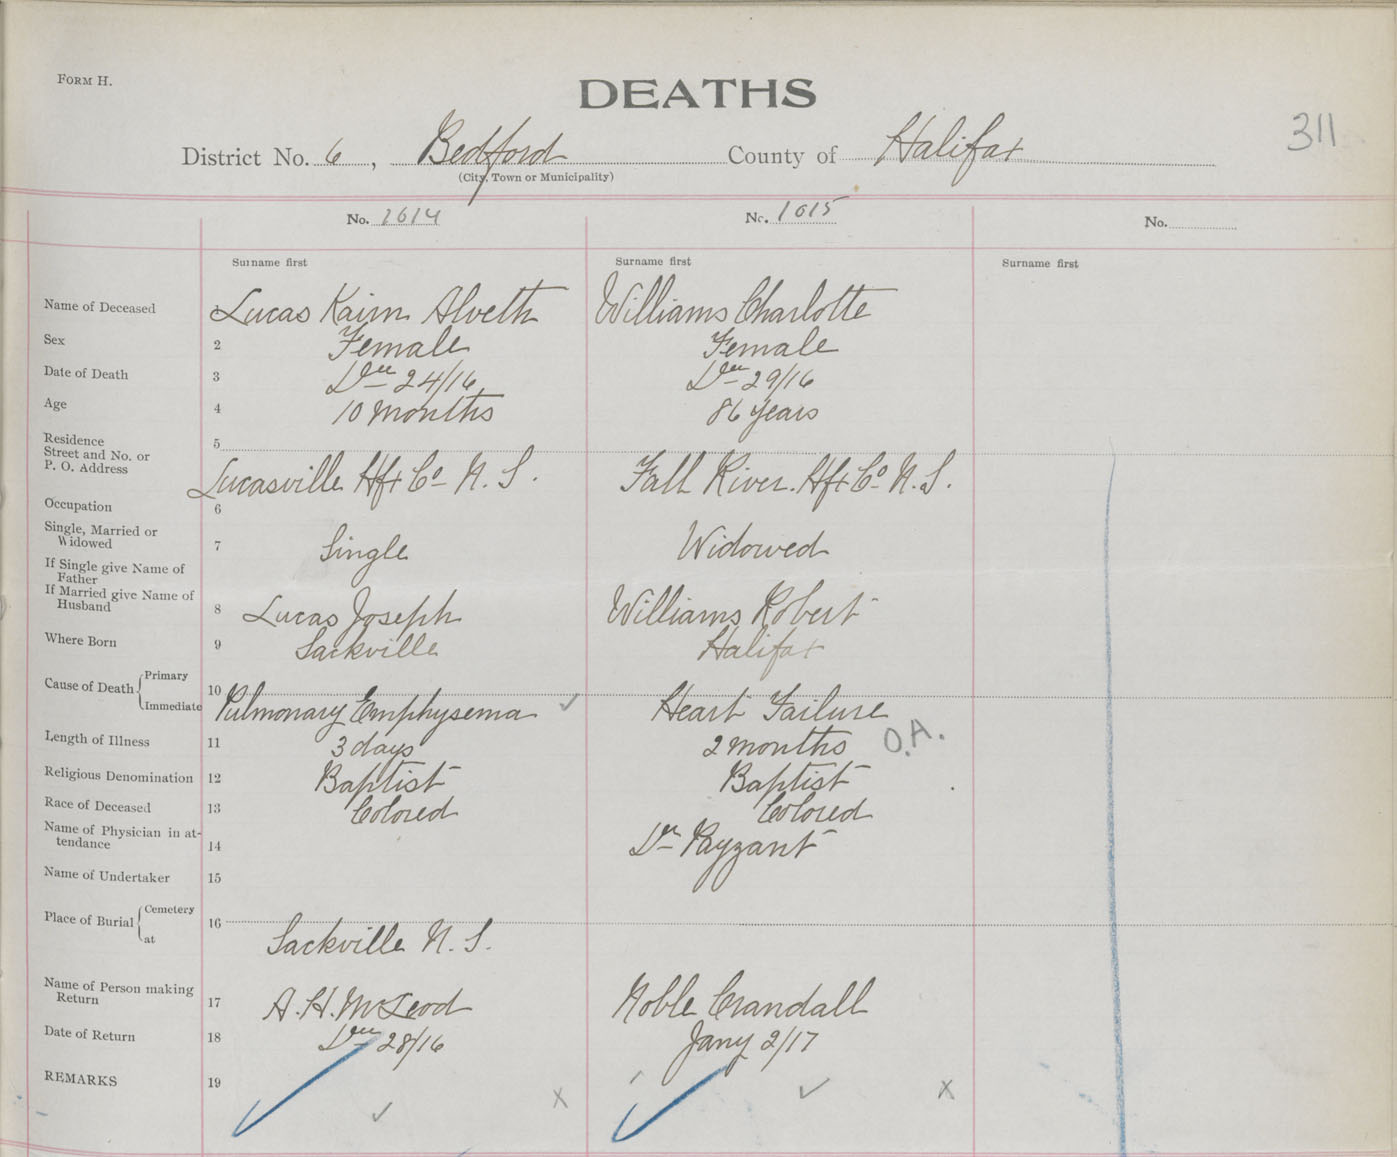 FORM H.
DEATHS
311
District No. 6, Bedford County of Halifax
(City, Town or Municipality)
No. 1614 No. 1615 No.
Surname first Surname first Surname first
Name of Deceased 1 Lucas Kairn Alveth Williams Charlotte
Sex 2 Female Female
Date of Death 3 Dec 24/16 Dec 29/16
Age 4 10 months 86 years
Residence 5
Street and No. or
P. O. Address Lucasville Hfx Co N. S. Fall River. Hfx Co N. S.
Occupation 6
Single, Married or
Widowed 7 Single Widowed
If Single give Name of
Father
If Married give Name of
Husband 8 Lucas Joseph Williams Robert
Where Born 9 Sackville Halifax
Cause of Death Primary 10
Immediate Pulmonary Emphysema Heart Failure
Length of Illness 11 3 days 2 months O.A.
Religious Denomination 12 Baptist Baptist
Race of Deceased 13 Colored Colored
Name of Physician in at-
tendance 14 Dr Payzant
Name of Undertaker 15
Place of Burial Cemetery 16
at Sackville N. S.
Name of Person making
Return 17 A. H. McLeod Noble Crandall
Date of Return 18 Dec 28/16 Jany 2/17
REMARKS 19